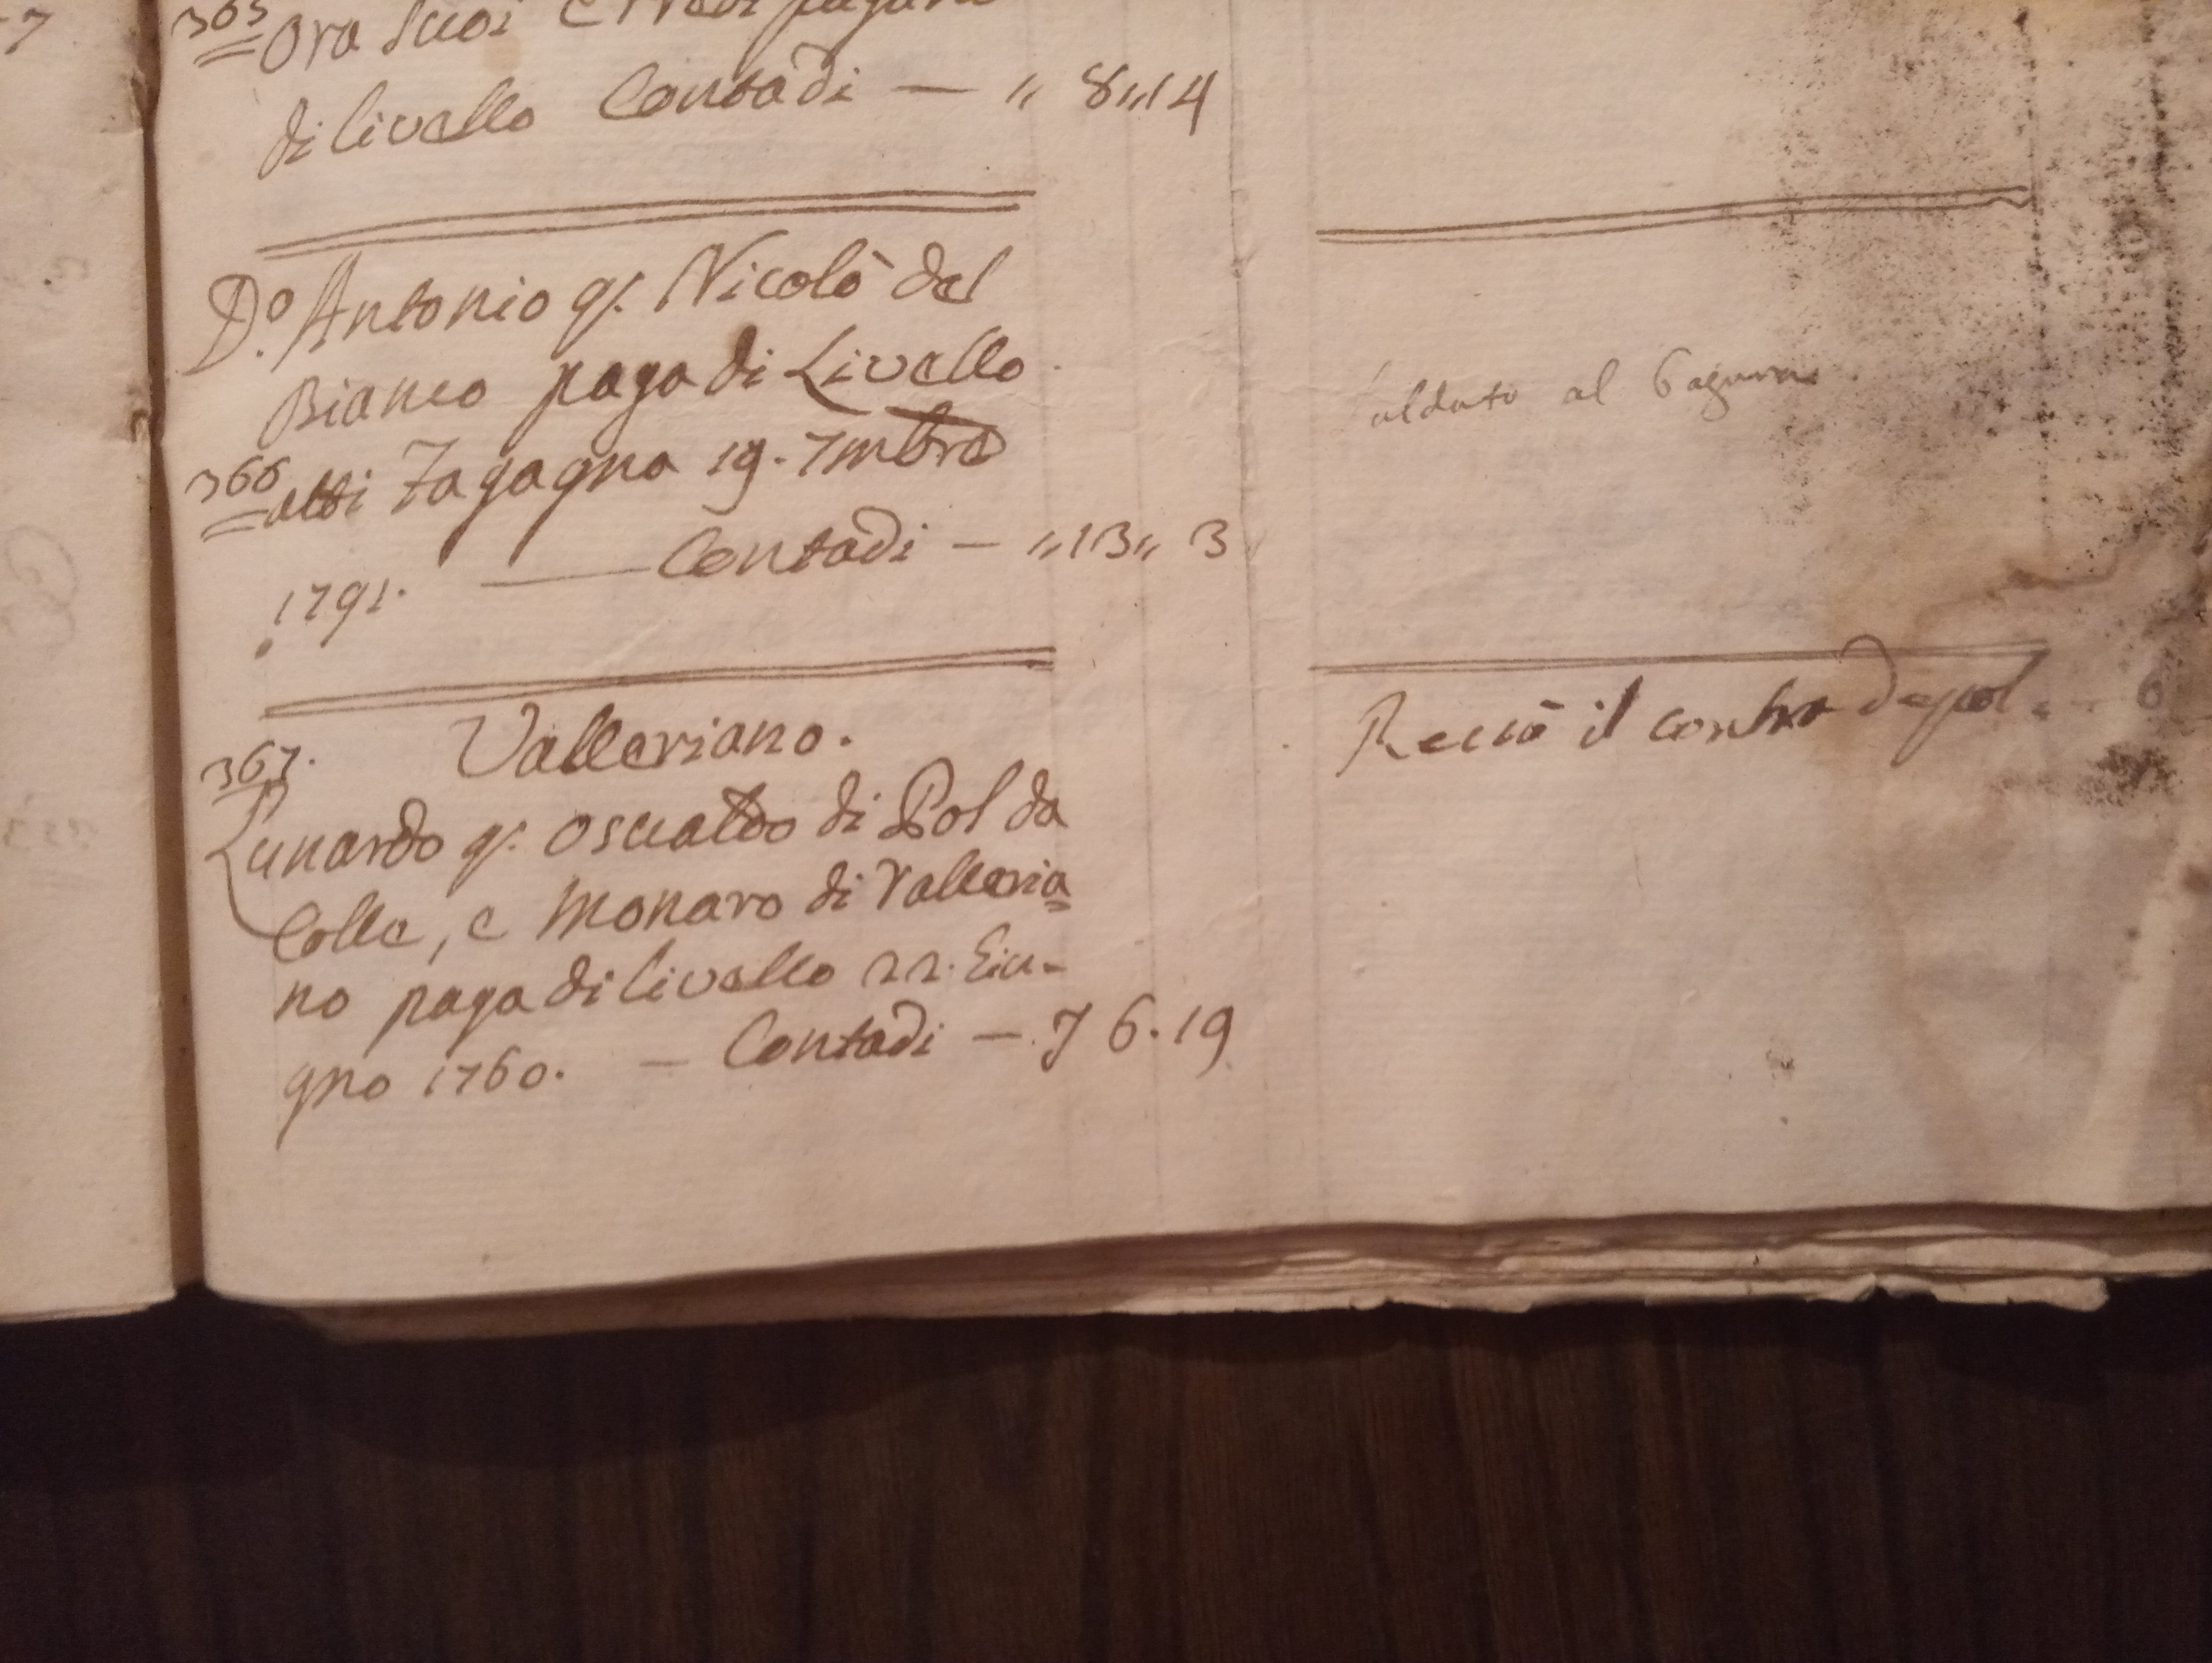 365 Ora suoi Eredi pagano
di livello Contadi — „ 8„14
D.º Antonio q. Nicolò del
Bianco paga di Livello
366 atti Fagagna 19. 7mbre
1791. — Contadi — „13„ 3
367. Valleriano.
Lunardo q. Osualdo di Pol da
Colle, e Monaro di Valleria
no paga di livello 22. Giu-
gno 1760. — Contadi — 7 6.19
al
il contra